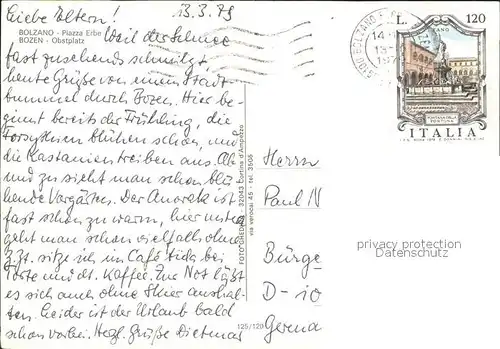 Liebe Eltern! 13.3.79
BOLZANO - Piazza Erbe
BOZEN - Obstplatz
Weil der Schnee
fast zusehends schmilzt,
heute Grüße von einem Stadt-
bummel durch Bozen. Hier be-
ginnt bereits der Frühling, die
Forsythien blühen schon, und
die Kastanien treiben aus. Ab
und zu sieht man schon blü-
hende Vorgärten. Der Anorak ist
fast schon zu warm, hier unten
geht man schon vielfach ohne.
Zzt. sitze ich im Café bei
Torte und dt. Kaffee. Zur Not läßt
es sich auch ohne Skier aushal-
ten. Leider ist der Urlaub bald
schon vorbei. Hzgl. Grüße Dietmar
FOTO GHEDINA 32043 Cortina d'Ampezzo
via 45 - tel. 3606
125/120
BOLZANO
13
L. 120
FANO
FONTANA DELLA
FORTUNA
ITALIA
Herrn
Paul N
Bürge
D-10
Germa
privacy protection
Datenschutz